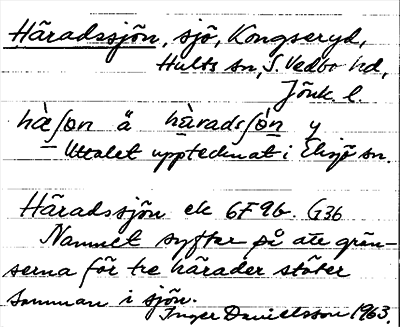 Häradssjön, sjö, Kongseryd,
Hults sn, S. Vedbo hd,
Jönk. l.
hàʃon ä hàradsʃòn y
Uttalet upptecknat i Eksjö sn.
Häradssjön ek 6F9b G36
Namnet syftar på att grän-
serna för tre härader stöter
samman i sjön.
Inger Danielsson 1963.